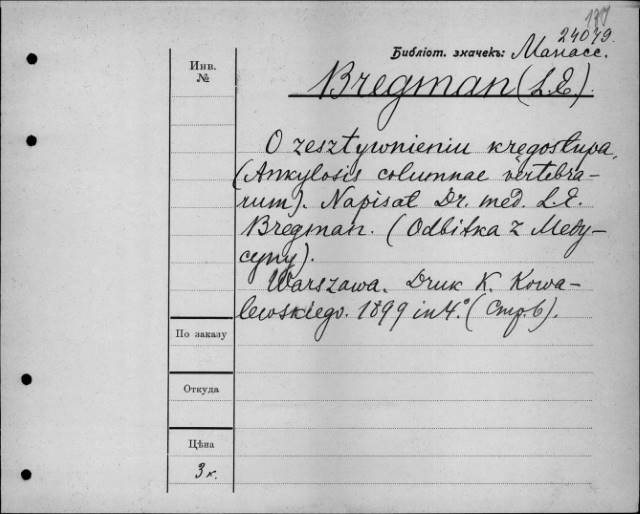 137
24079.
Библіот. значекъ: Манасс.
Инв.
№
Bregman (L.E.).
O zesztywnieniu kręgosłupa,
(Ankylosis columnae vertebra-
rum). Napisał Dr. med. L.E.
Bregman. (Odbitka z Medy-
cyny).
Warszawa. Druk K. Kowa-
lewskiego. 1899 in 4.° (Стр. 6).
По заказу
Откуда
Цѣна
3 к.